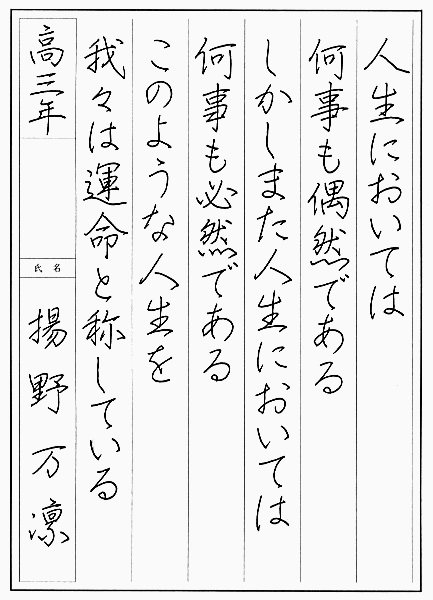 人生においては
何事も偶然である
しかしまた人生においては
何事も必然である
このような人生を
我々は運命と称している
高三年
氏名
揚野万凛